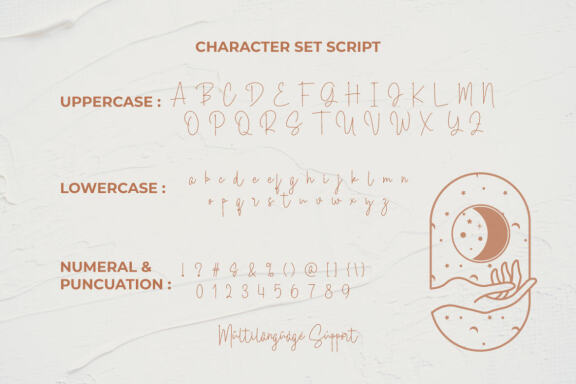 CHARACTER SET SCRIPT
UPPERCASE :
A B C D E F G H I J K L M N
O P Q R S T U V W X Y Z
LOWERCASE :
a b c d e f g h i j k l m n
o p q r s t u v w x y z
NUMERAL &
PUNCUATION :
! ? # $ & % ( ) @ [ ] { }
0 1 2 3 4 5 6 7 8 9
Mültilangüage Süpport